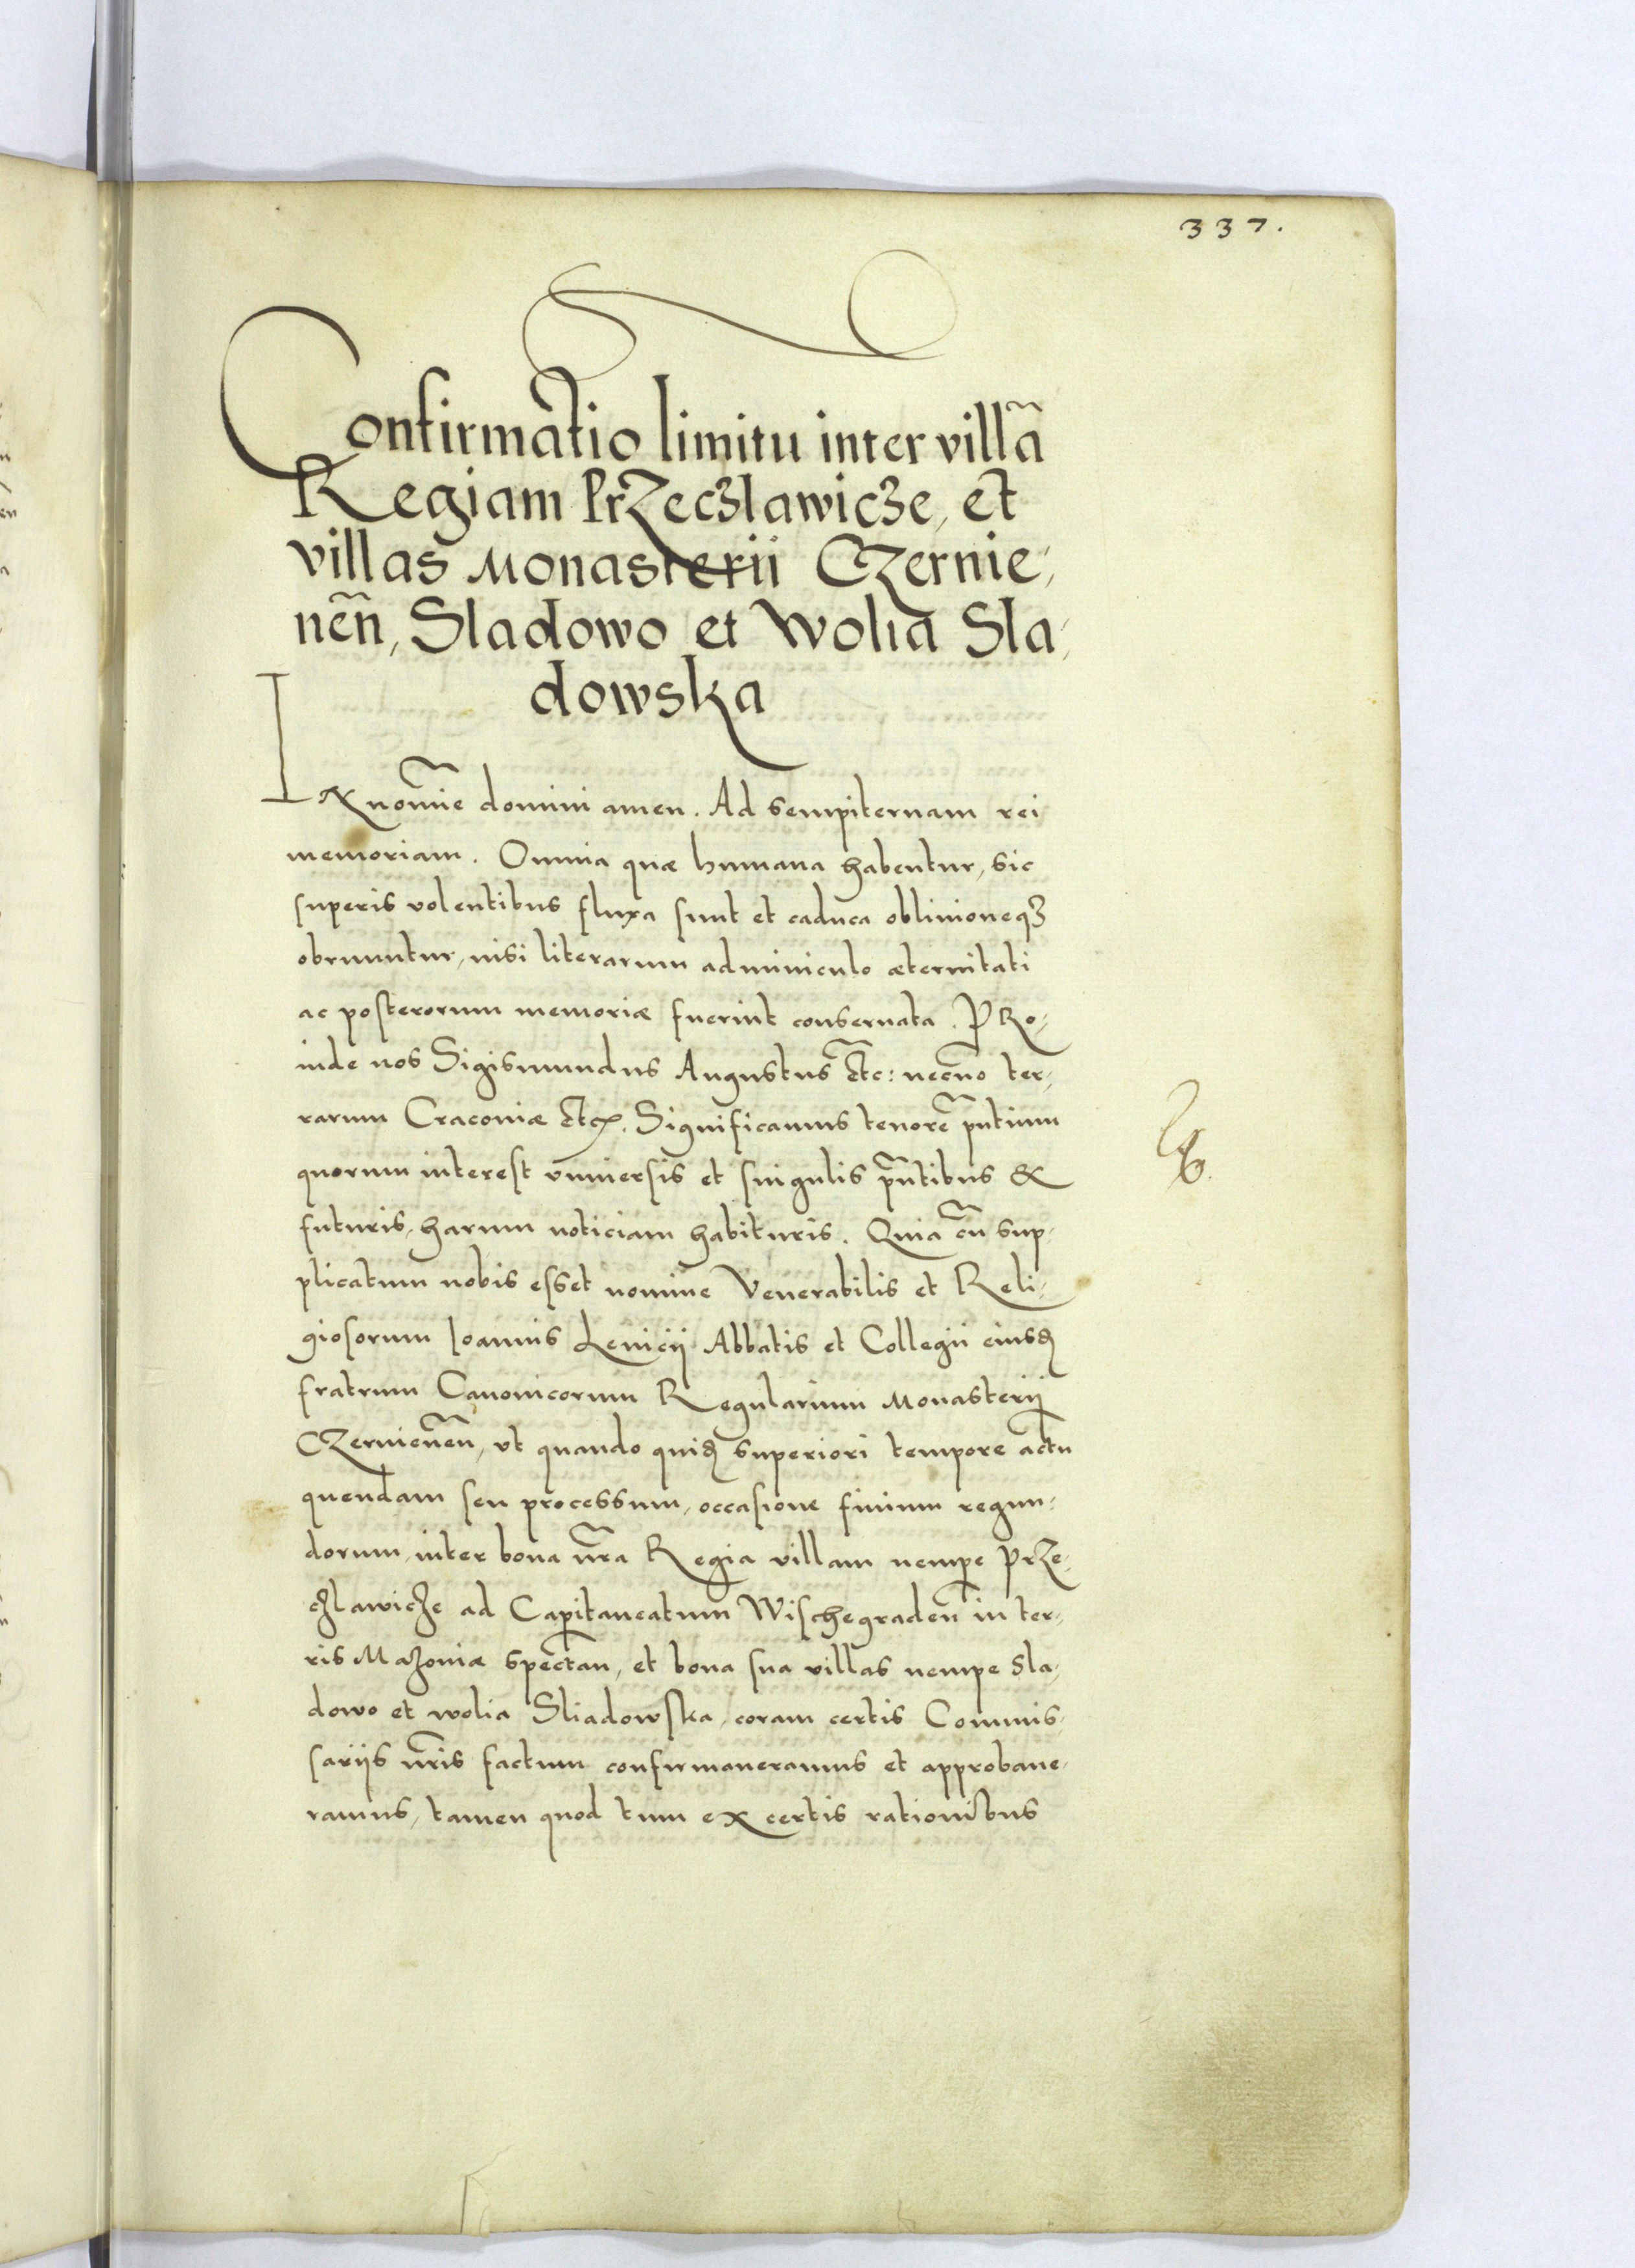 337.
Confirmatio limitu inter villã
Regiam Przeczlawicze, et
villas Monasterii Czernie,
nẽn, Sladowo et Wolia Sla,
dowska
IN nomĩe domini amen. Ad sempiternam rei
memoriam. Omnia quæ humana habentur, sic
superis volentibus fluxa sunt et caduca obliuioneqꝫ
obruuntur, nisi literarum adminiculo æternitati
ac posterorum memoriæ fuerint conseruata. PRo,
inde nos Sigismundus Augustus etc̃: necnõ ter,
rarum Cracouiæ etc. Significamus tenorẽ pñtium
quorum interest vniuersis et singulis pñtibus &
futuris, harum noticiam habituris. Quia cũ sup,
plicatum nobis esset nomine Venerabilis et Reli,
giosorum Ioannis Leuicij Abbatis et Collegii eiusdꝫ
fratrum Canonicorum Regularium Monasterij
Czernieneñ, vt quando quidꝫ superiori tempore actũ
quendam seu processum, occasione finium regun,
dorum, inter bona nr̃a Regia villam nempe Prze,
czlawicze ad Capitaneatum Wischegradeñ in ter,
ris Mazouiæ spectan, et bona sua villas nempe Sla,
dowo et wolia Sliadowska, coram certis Commis,
sarijs nr̃is factum confirmaueramus et approbaue,
ramus, tamen quod tum ex certis rationibus